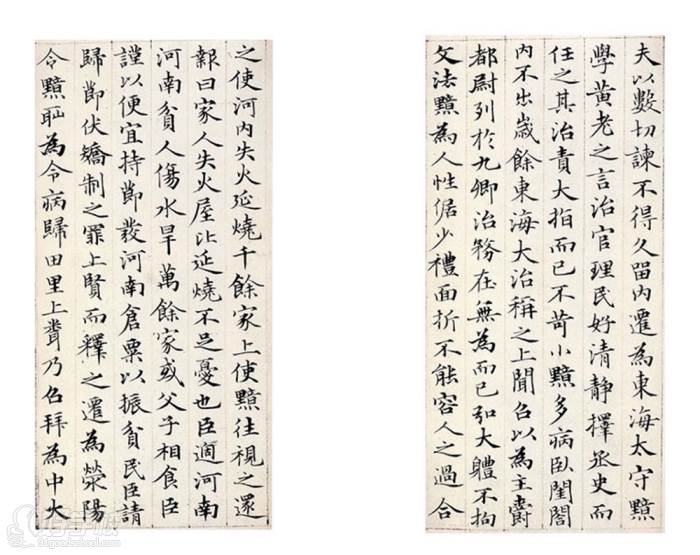 之使河內失火延燒千餘家上使黯往視之還
報曰家人失火屋比延燒不足憂也臣適河南
河南貧人傷水旱萬餘家或父子相食臣
謹以便宜持節發河南倉粟以振貧民臣請
歸節伏矯制之罪上賢而釋之遷為滎陽
令黯恥為令病歸田里上聞乃召拜為中大
夫以數切諫不得久留內遷為東海太守黯
學黃老之言治官理民好清靜擇丞史而
任之其治責大指而已不苛小黯多病臥閨閤
內不出歲餘東海大治稱之上聞召以為主爵
都尉列於九卿治務在無為而已弘大體不拘
文法黯為人性倨少禮面折不能容人之過合